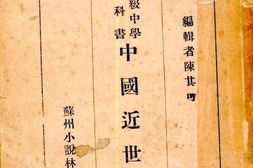 編輯者陳其可
級中學
科書
中國近世
蘇州小說林